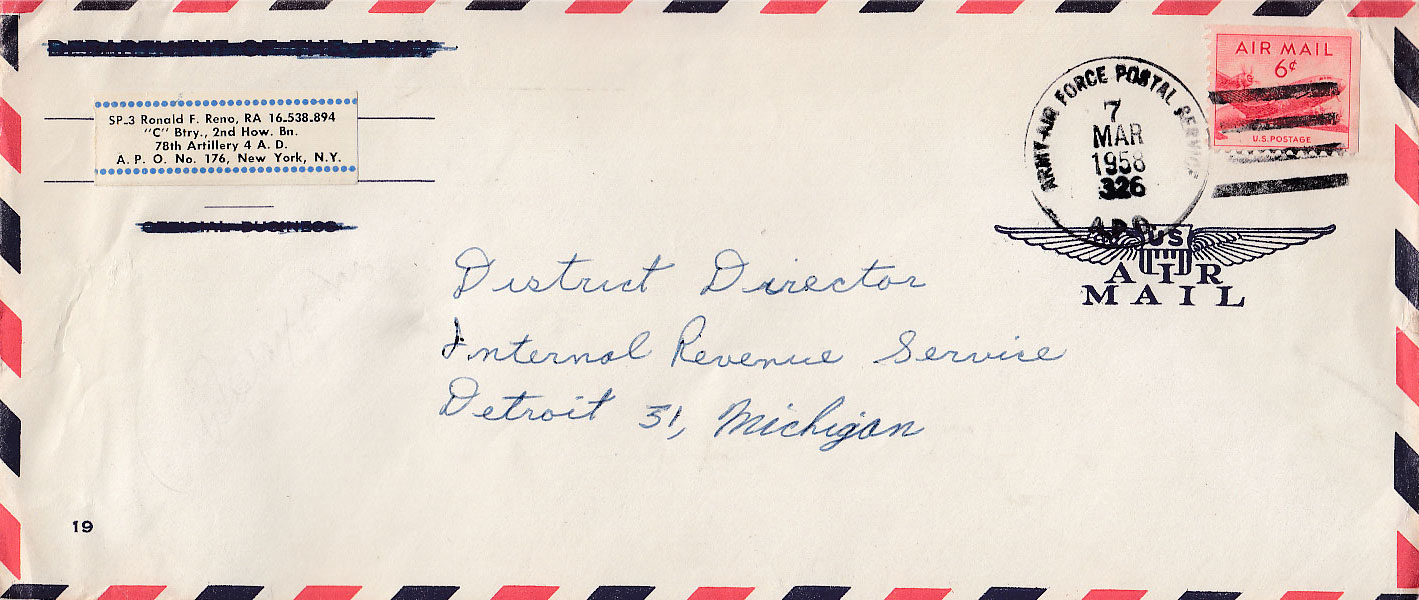 DEPARTMENT OF THE ARMY
SP-3 Ronald F. Reno, RA 16-538-894
"C" Btry., 2nd How. Bn.
78th Artillery 4 A. D.
A. P. O. No. 176, New York, N.Y.
OFFICIAL BUSINESS
ARMY-AIR FORCE POSTAL SERVICE
7
MAR
1958
326
A.P.O.
AIR MAIL
6¢
U.S. POSTAGE
US
AIR
MAIL
District Director
Internal Revenue Service
Detroit 31, Michigan
19